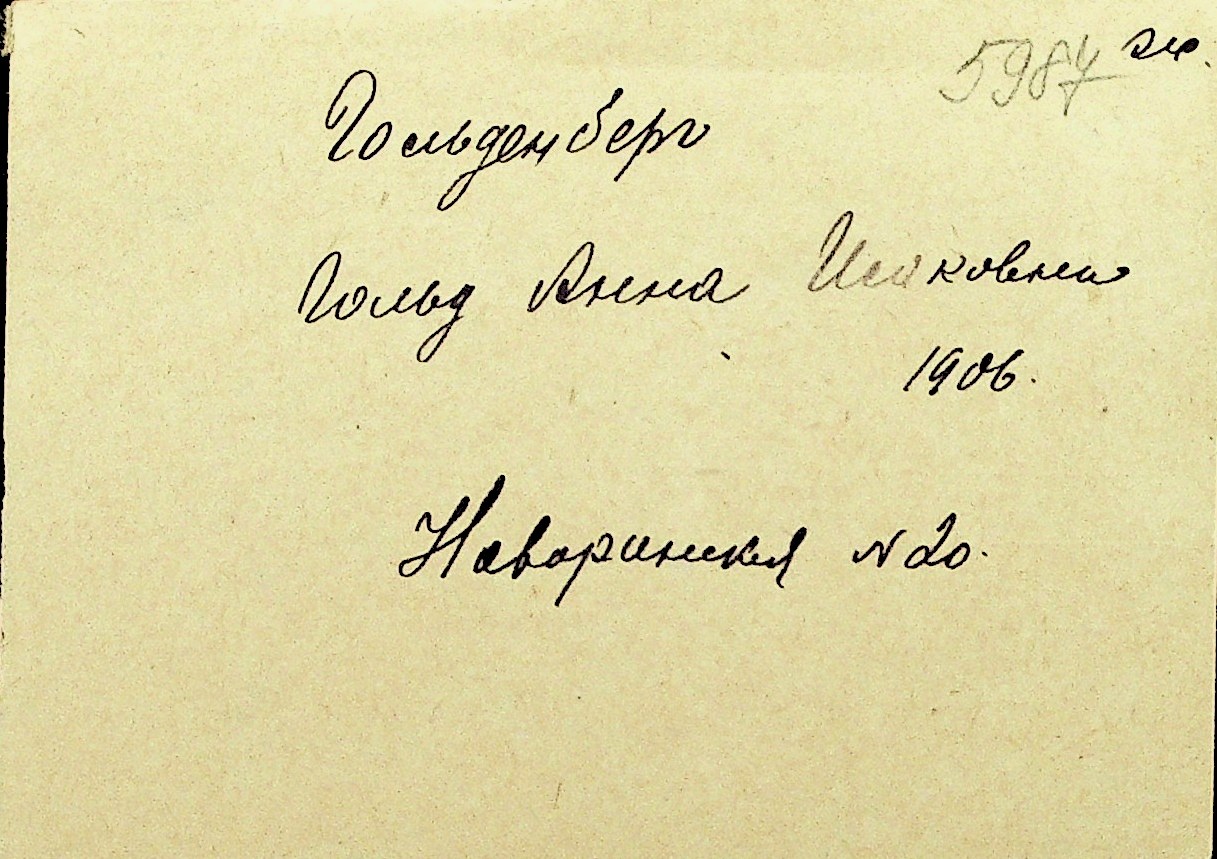 5987 эк.
Гольденберг
Гольд Анна Исаковна
1906.
Наваринская N 20.